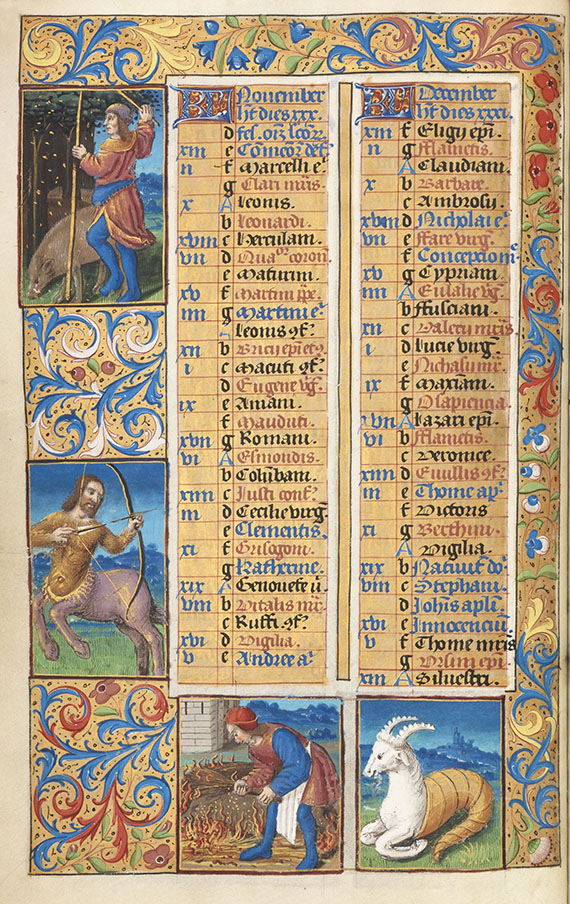 KL November
ht dies xxx.
d fest. oim scor.
xiii e Comeor def.
ii f Marcelli e
g Clari mris
x A Leonis.
b Leonardi.
xviii c Herculani.
vii d Quatuor coron
e Maturini.
xv f Martini ppe.
iiii g Martini e
Leonis 9f
xii b Bricii epi et 9
i c Macuti 9f
d Eugenie vg
ix e Amani.
f Mauduti.
xvii g Romani.
vi A Esmondis.
b Columbani.
xiiii c Justi conf
iii d Cecilie virg
e Clementis.
xi f Grisogoni.
g Katherine.
xix A Genovefe v.
viii b Vitalis mr.
c Ruffi 9f
xvi d Vigilia.
v e Andree a
KL December
ht dies xxxi.
xiii f Eligii epi.
ii g Flametis.
A Claudiani.
x b Barbare.
c Ambrosii.
xviii d Nicholai e
vii e Fare virg.
f Conceptiom
xv g Cypriani.
iiii A Eulalie vg
b Fusciani.
xii c Valerii mris.
i d Lucie virg.
e Nichasii mr.
ix f Maxiani.
g Osapiencia.
xvii A Lazari epi.
vi b Flametis.
c Veronice.
xiiii d Eiullis 9f
iii e Thome ap
f Victoris
xi g Berthini.
A Vigilia.
xix b Nativit do
viii c Stephani.
d Johis aple
xvi e Innocenciu
v f Thome mris
g Ursini epi.
xiii A Silvestri.